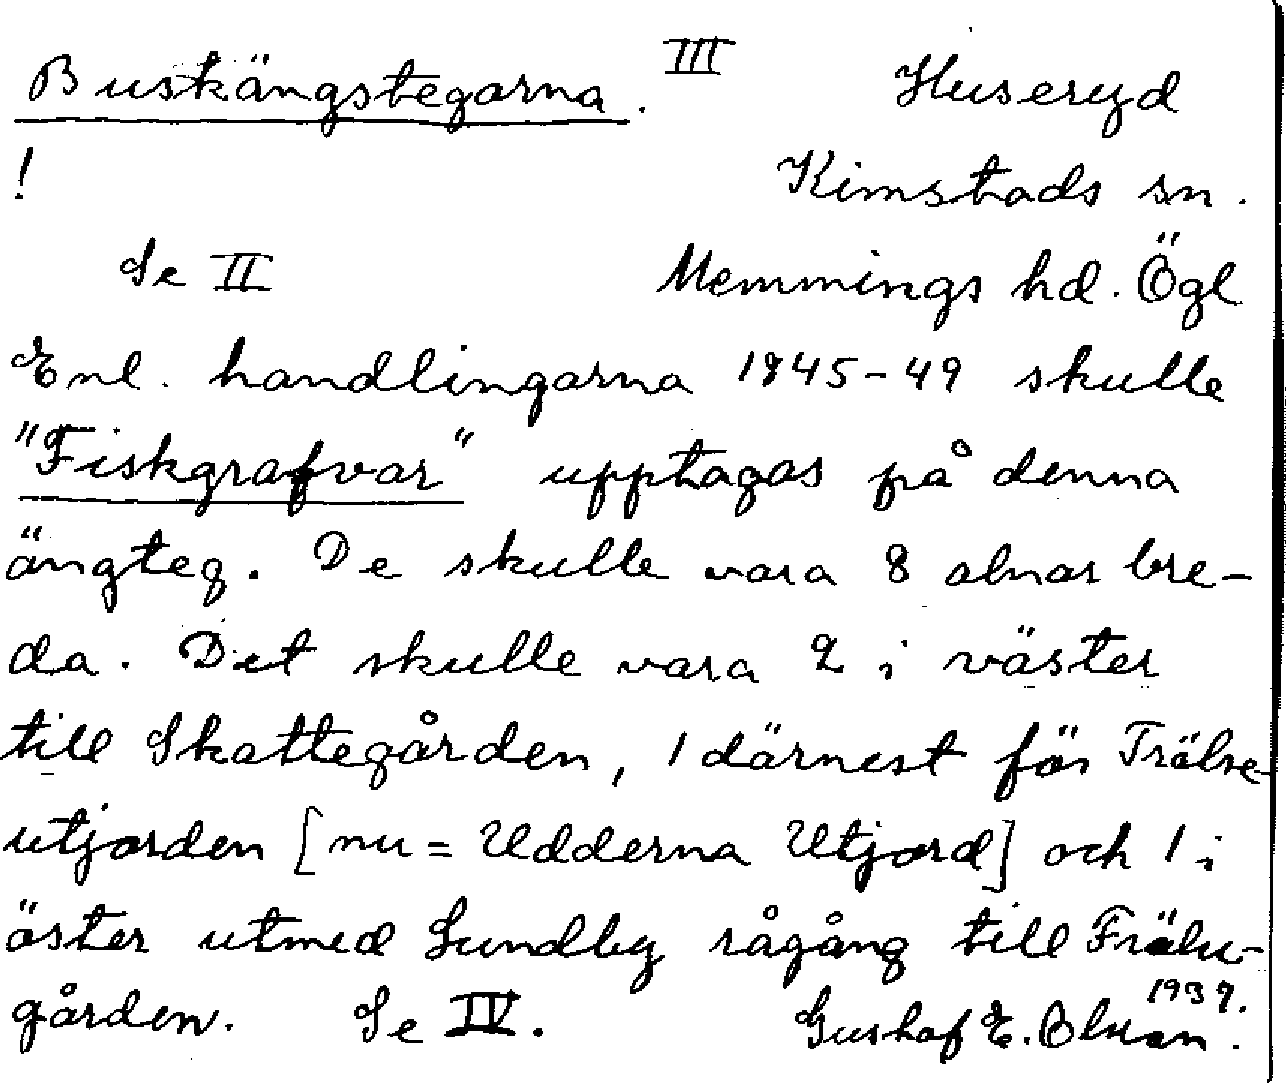 Buskängstegarna. III Huseryd
! Kimstads sn.
Se II Memmings hd. Ögl
Enl. handlingarna 1845-49 skulle
"Fiskgrafvar" upptagas på denna
ängteg. De skulle vara 8 alnar bre-
da. Det skulle vara 2 i väster
till Skattegården, 1 därnest för Frälse
utjorden [nu = Udderna Utjord] och 1 i
öster utmed Lundby rågång till Frälse-
gården. Se IV. 1939.
Gushaf E.